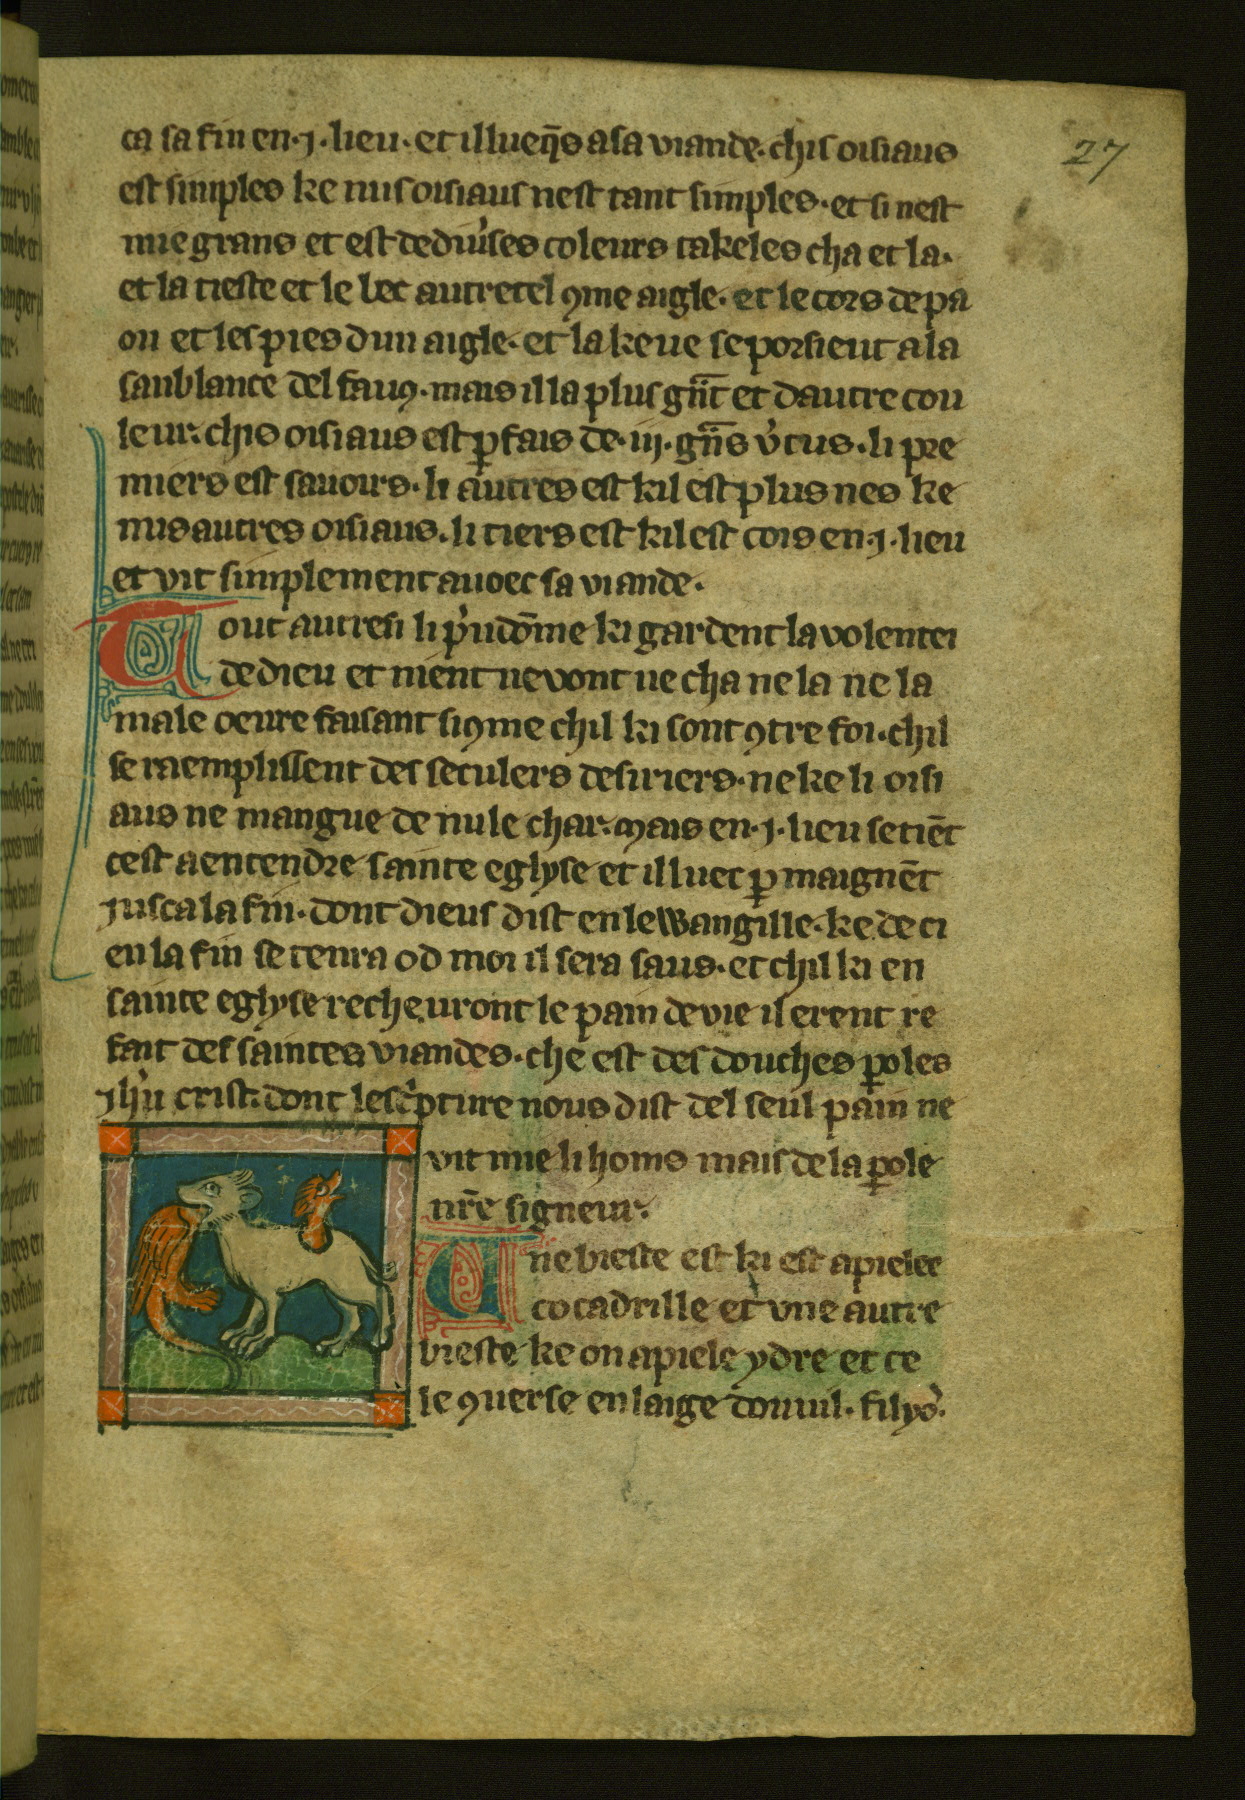 27
ca sa fin en .j. lieu. et illueq̄s a sa viande. chis oisiaus
est simples ke nus oisiaus nest tant simples. et si nest
mie grans et est de diu͛ses coleurs takeles cha et la.
et la tieste et le bec autretel ꝯme aigle. et le cors de pa
on et les pies dun aigle. et la keue se porsieut a la
sanblance del fauꝯ. mais il la plus gn̄t et dautre cou
leur. chis oisiaus est ꝑfais de .iij. gn̄s v͛tus. li pre
miers est sauoirs. li autres est kil est plus nes ke
nus autres oisiaus. li tiers est kil est cois en .j. lieu
et vit simplement auoec sa viande.
Tout autresi li p͛udōme ki gardent la volentei
de dieu et nient ne vont ne cha ne la ne la
male oeure faisant si ꝯme chil ki sont ꝯtre foi. chil
se raemplissent des seculers desiriers. ne ke li oisi
aus ne mangue de nule char. mais en .j. lieu se tiēt
cest a entendre sainte eglyse et illuec ꝑmaignēt
jusca la fin. dont dieus dist en lewangille. ke de ci
en la fin se tenra od moi il sera saus. et chil ki en
sainte eglyse recheuront le pain de vie il erent re
fait des saintes viandes. che est des douches ꝑoles
jhu̍ crist. dont lesc͛pture nous dist del seul pain ne
vit mie li homs mais de la ꝑole
nr̄e signeur.
Une bieste est ki est apielee
cocadrille et vne autre
bieste ke on apiele ydre et ce
le ꝯuerse en laige dou nil. filyo͛.